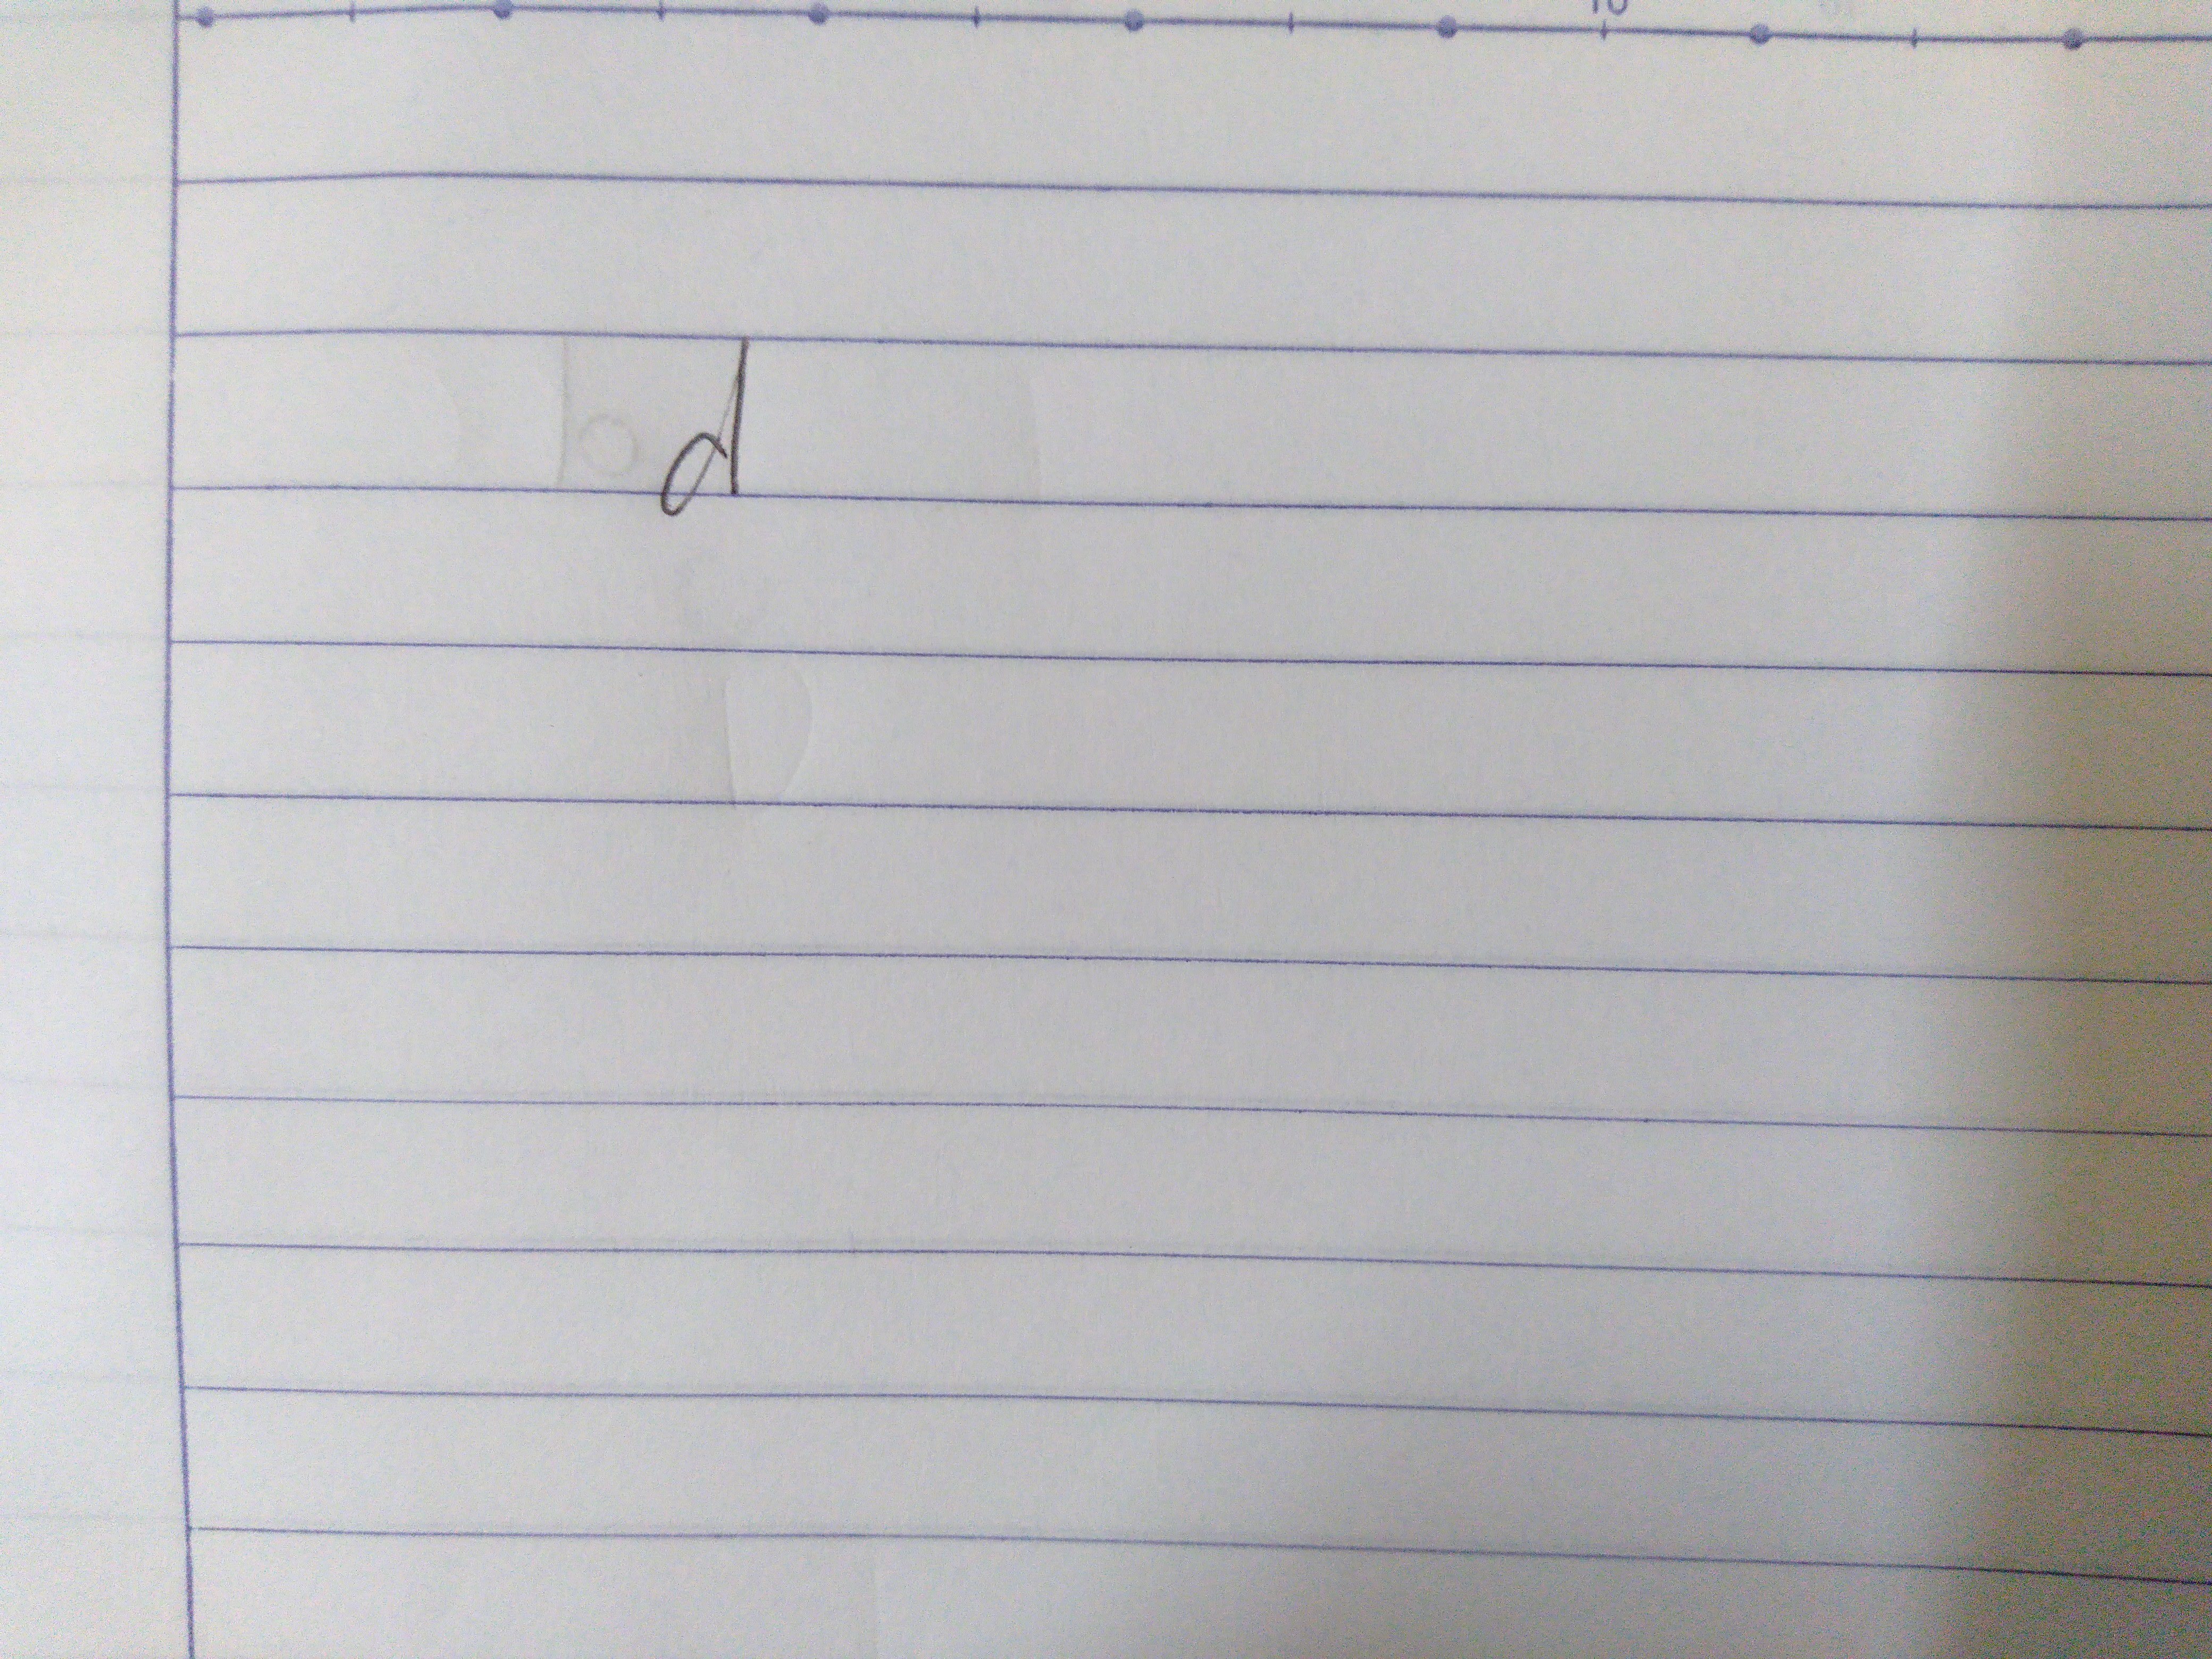 10
d